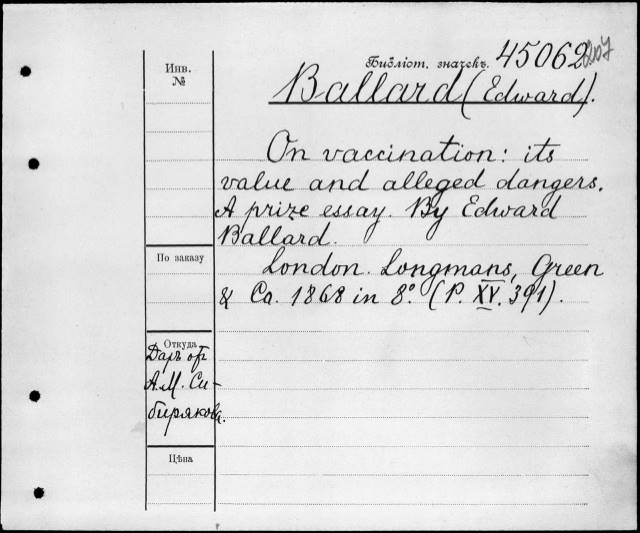 Инв.
№
Библіот. значекъ. 45062
Ballard (Edward).
On vaccination: its
value and alleged dangers.
A prize essay. By Edward
Ballard.
London. Longmans, Green
& Co. 1868 in 8º. (P. XV. 391).
По заказу
Откуда
Даръ от
А.М. Си-
бирякова.
Цѣна